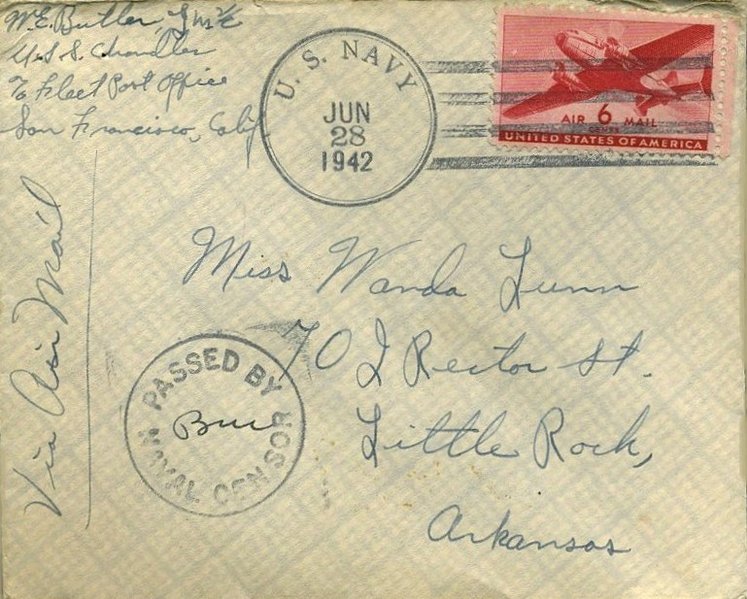 W.E. Butler
U.S.S. Chandler
℅ Fleet Post Office
San Francisco, Calif.
U. S. NAVY
JUN
28
1942
AIR 6 MAIL
CENTS
UNITED STATES OF AMERICA
Via Air Mail
Miss Wanda Lunn
Rector St.
Little Rock,
Arkansas
PASSED BY
NAVAL CENSOR